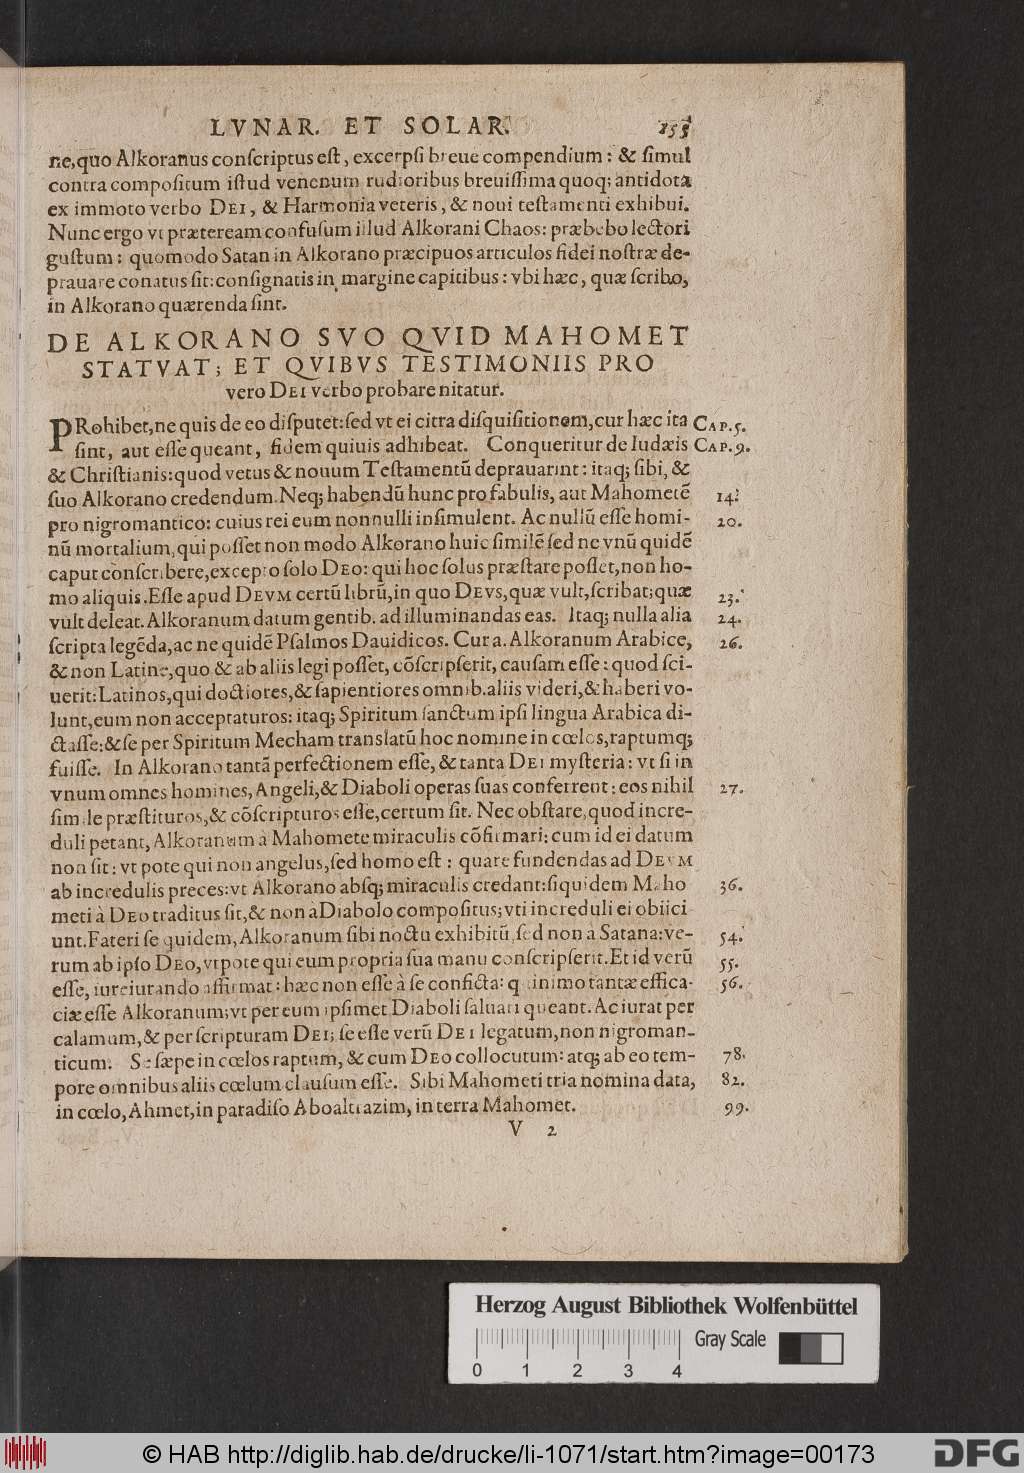 LVNAR. ET SOLAR. 155
ne, quo Alkoranus conſcriptus eſt, excerpſi breue compendium: & ſimul
contra compoſitum iſtud venenum rudioribus breuiſſima quoq; antidota
ex immoto verbo DEI, & Harmonia veteris, & noui teſtamenti exhibui.
Nunc ergo vt præteream confuſum illud Alkorani Chaos: præbebo lectori
guſtum: quomodo Satan in Alkorano præcipuos articulos fidei noſtræ de-
prauare conatus ſit: conſignatis in margine capitibus: vbi hæc, quæ ſcribo,
in Alkorano quærenda ſint.
DE ALKORANO SVO QVID MAHOMET
STATVAT; ET QVIBVS TESTIMONIIS PRO
vero DEI verbo probare nitatur.
PRohibet, ne quis de eo diſputet: ſed vt ei citra diſquiſitionem, cur hæc ita CAP. 5.
ſint, aut eſſe queant, fidem quiuis adhibeat. Conqueritur de Iudæis CAP. 9.
& Chriſtianis: quod vetus & nouum Teſtamentũ deprauarint: itaq; ſibi, &
ſuo Alkorano credendum. Neq; habendũ hunc pro fabulis, aut Mahometẽ 14.
pro nigromantico: cuius rei eum nonnulli inſimulent. Ac nullũ eſſe homi- 20.
nũ mortalium, qui poſſet non modo Alkorano huic ſimilẽ ſed ne vnũ quidẽ
caput conſcribere, excepto ſolo DEO: qui hoc ſolus præſtare poſſet, non ho-
mo aliquis. Eſſe apud DEVM certũ librũ, in quo DEVS, quæ vult, ſcribat; quæ 23.
vult deleat. Alkoranum datum gentib. ad illuminandas eas. Itaq; nulla alia 24.
ſcripta legẽda, ac ne quidẽ Pſalmos Dauidicos. Cur a. Alkoranum Arabice, 26.
& non Latine, quo & ab aliis legi poſſet, cõſcripſerit, cauſam eſſe: quod ſci-
uerit: Latinos, qui doctiores, & ſapientiores omnib. aliis videri, & haberi vo-
lunt, eum non acceptaturos: itaq; Spiritum ſanctum ipſi lingua Arabica di-
ctaſſe: & ſe per Spiritum Mecham translatũ hoc nomine in cœlos, raptumq;
fuiſſe. In Alkorano tantã perfectionem eſſe, & tanta DEI myſteria: vt ſi in
vnum omnes homines, Angeli, & Diaboli operas ſuas conferrent: eos nihil 27.
ſimile præſtituros, & cõſcripturos eſſe, certum ſit. Nec obſtare, quod incre-
duli petant, Alkoranum à Mahomete miraculis cõfirmari: cum id ei datum
non ſit: vt pote qui non angelus, ſed homo eſt: quare fundendas ad DEVM
ab incredulis preces: vt Alkorano abſq; miraculis credant: ſiquidem Maho 36.
meti à DEO traditus ſit, & non à Diabolo compoſitus; vti increduli ei obiici
unt. Fateri ſe quidem, Alkoranum ſibi noctu exhibitũ, ſed non à Satana: ve- 54.
rum ab ipſo DEO, vtpote qui eum propria ſua manu conſcripſerit. Et id verũ 55.
eſſe, iureiurando affirmat: hæc non eſſe à ſe conficta: quinimo tantæ effica- 56.
ciæ eſſe Alkoranum; vt per eum ipſimet Diaboli ſaluari queant. Ac iurat per
calamum, & per ſcripturam DEI; ſe eſſe verũ DEI legatum, non nigroman-
ticum. Se ſæpe in cœlos raptum, & cum DEO collocutum: atq; ab eo tem- 78.
pore omnibus aliis cœlum clauſum eſſe. Sibi Mahometi tria nomina data, 82.
in cœlo, Ahmet, in paradiſo Aboaltrazim, in terra Mahomet. 99.
V 2
Herzog August Bibliothek Wolfenbüttel
Gray Scale
0 1 2 3 4
© HAB http://diglib.hab.de/drucke/li-1071/start.htm?image=00173
DFG